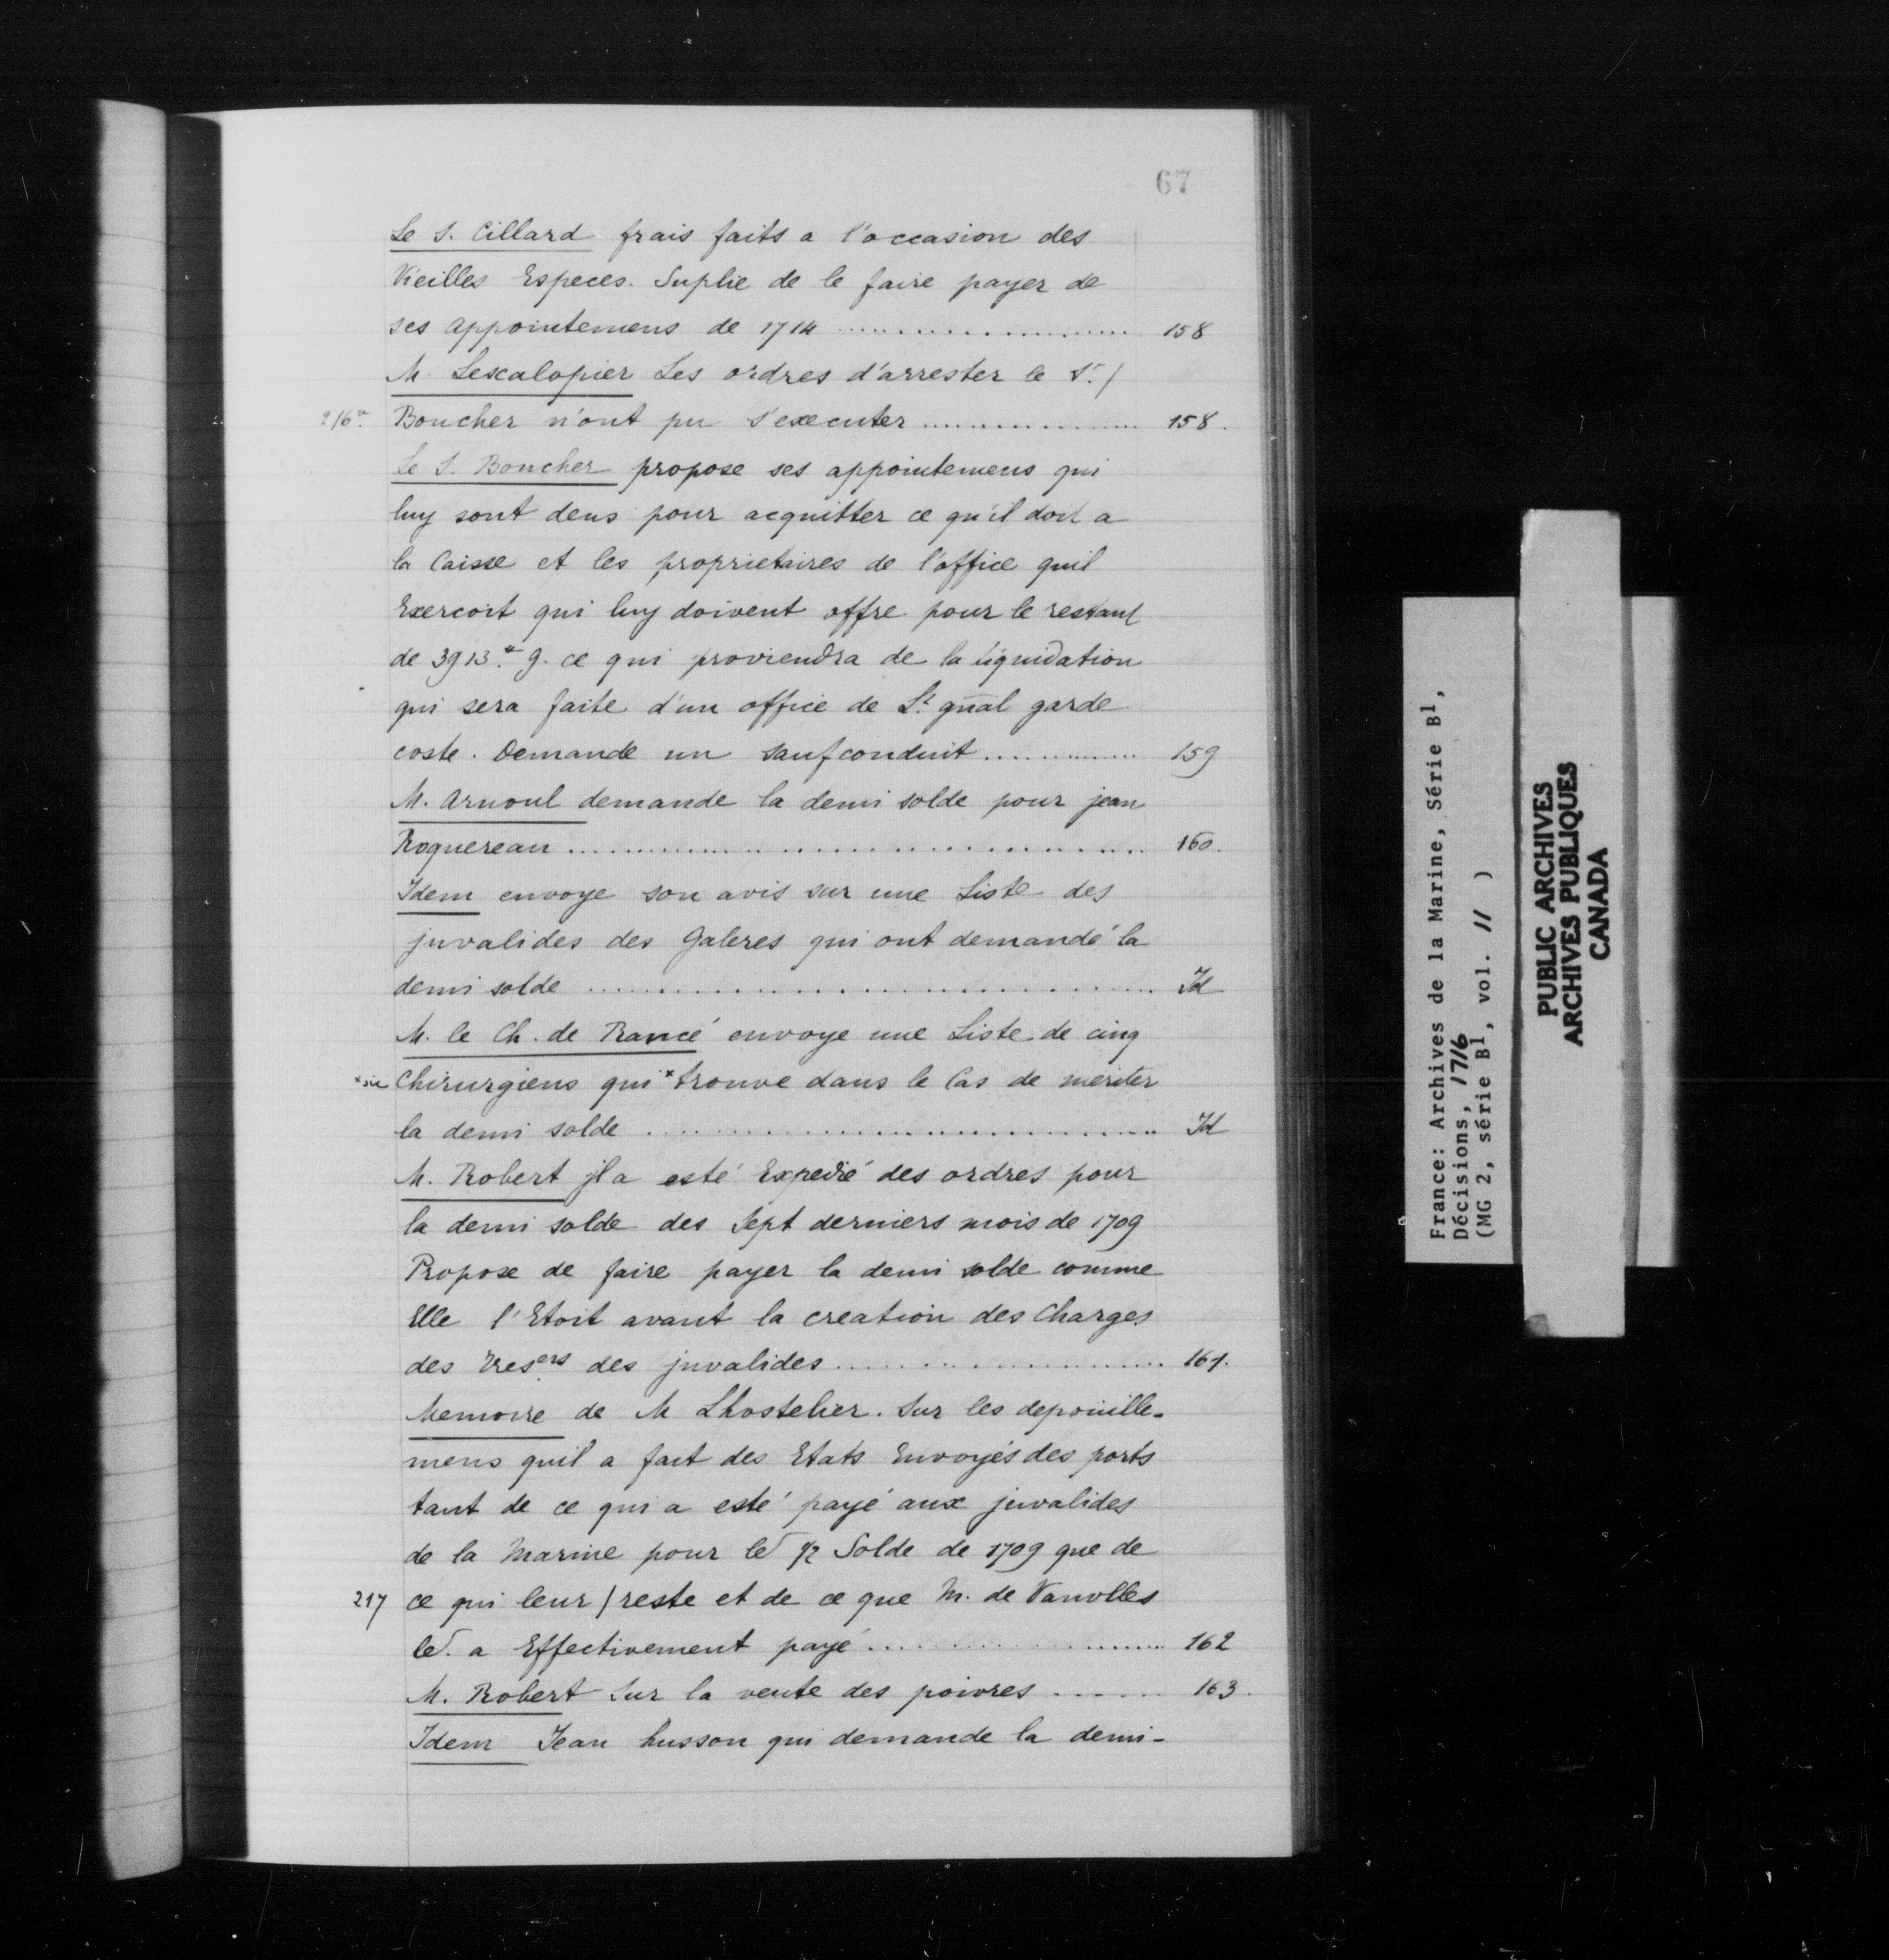 67
Le S. Cillard frais faits a l'occasion des
Vieilles Especes. Suplie de le faire payer de
ses appointemens de 1714 ........................ 158
M Lescalopier Les ordres d'arrester le Sr. /
216vo. Boucher n'ont pu s'executer .................. 158.
Le S. Boucher propose ses appointemens qui
luy sont deus pour acquitter ce qu'il doit a
la Caisse et les proprietaires de l'office quil
Exercoit qui luy doivent offre pour le restant
de 3913.# 9. ce qui proviendra de la liquidation
qui sera faite d'un office de Lt. gnāl garde
coste. Demande un saufconduit ............. 159
M. Arnoul demande la demi solde pour jean
Roquereau ........................................ 160.
Idem envoye son avis sur une Liste des
jnvalides des Galeres qui ont demandé la
demi solde ........................................ Id
M. le Ch. de Rancé envoye une Liste de cinq
*sic Chirurgiens qui * trouve dans le Cas de meriter
la demi solde .................................... Id
M. Robert jl a esté Expedié des ordres pour
la demi solde des Sept derniers mois de 1709
Propose de faire payer la demi solde comme
Elle l'Etoit avant la creation des Charges
des Tresers. des jnvalides ........................ 161.
Memoire de M Lhostelier. Sur les depouille-
mens quil a fait des Etats Envoyés des ports
tant de ce qui a esté payé aux jnvalides
de la Marine pour led 1/2 Solde de 1709 que de
217 ce qui leur / reste et de ce que M. de Vanolles
led. a Effectivement payé ..................... 162
M. Robert Sur la vente des poivres ....... 163.
Idem Jean husson qui demande la demi-
France: Archives de la Marine, Série B1,
Décisions, 1716
(MG 2, série B1, vol. 11 )
PUBLIC ARCHIVES
ARCHIVES PUBLIQUES
CANADA